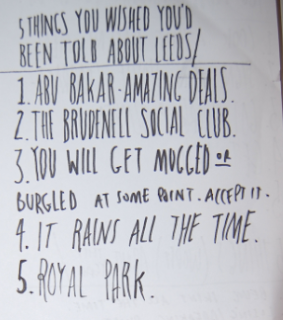 5 THINGS YOU WISHED YOU'D
BEEN TOLD ABOUT LEEDS/
1. ABU BAKAR-AMAZING DEALS.
2. THE BRUDENELL SOCIAL CLUB.
3. YOU WILL GET MUGGED OR
BURGLED AT SOME POINT. ACCEPT IT.
4. IT RAINS ALL THE TIME.
5. ROYAL PARK.